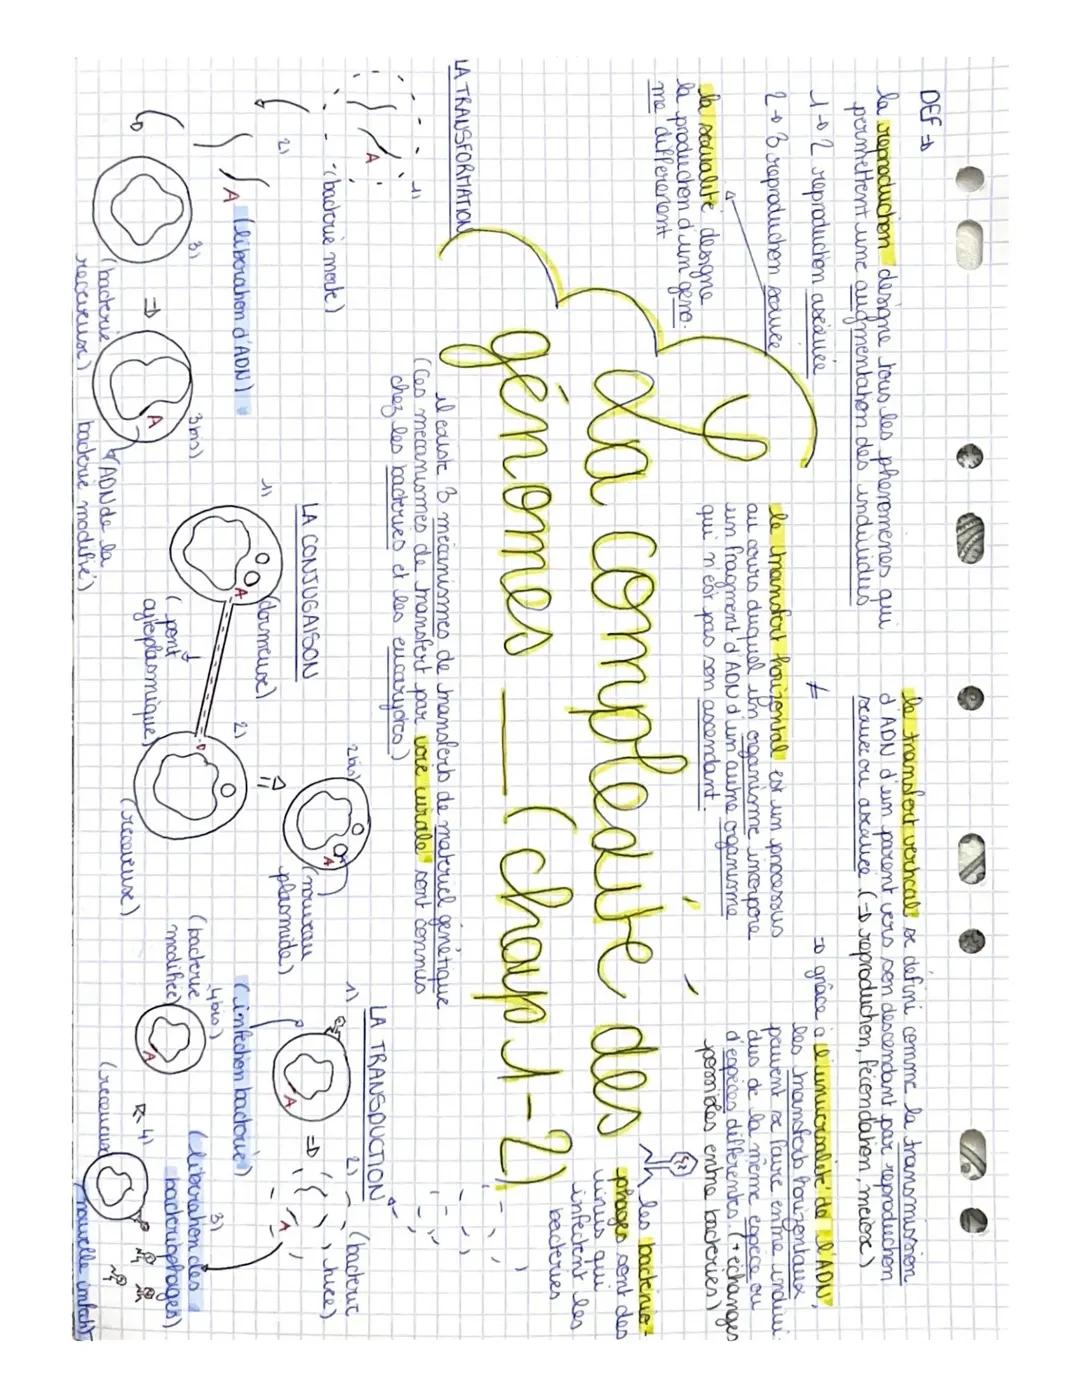 DEF →
la reproduction designe tous les phenomenes qui
permettent une augmentation des individus
1→2 reproduction asexuée
2→3 reproduction sexuée
la sexualité designe
la production d'un geno-
me differenent
le transfert vertical se defini comme la transmission
d'ADN d'un parent vers son descendant par reproduction
sexuée ou asexuée. (→ reproduction, fécondation, meiose)
≠
le transfert horizontal est un processus
au cours duquel un organisme incorpore
un fragment d'ADN d'un autre organisme
qui n'est pas son ascendant.
⇒ grâce à l'universalité de l'ADN,
les transferts horizontaux
peuvent se faire entre indivi-
dus de la même espèce ou
d'espèces différentes. (+ échanges
possibles entre bacteries)
La complexité des
génomes — (chap 1-2)
les bacterio-
phages sont des
virus qui
infectent les
bacteries
il existe 3 mécanismes de transferts de materiel génétique
(Ces mécanismes de transfert par voie virale sont connus
chez les bacteries et les eucaryotes)
LA TRANSFORMATION
1)
A
(bacterie morte)
2)
A (liberation d'ADN)
3)
(bacterie
receveuse)
3bis)
A
ADN de la
bacterie modifié)
LA CONJUGAISON
1)
(donneuse)
A
(pont
cytoplasmique)
2)
(receveuse)
2bis)
A
(nouveau
plasmide)
LA TRANSDUCTION
1)
A
(infection bacterie)
2)
(bacterie
lysée)
A
3)
(liberation des
bacteriophages)
4)
(receveuse)
(nouvelle infect°)
4bis)
(bacterie
modifiée)
A